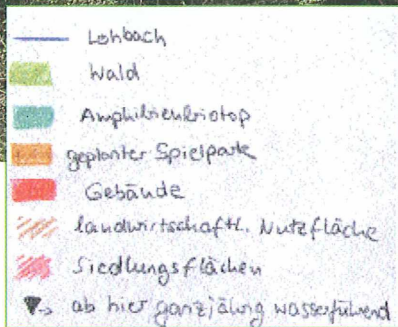 Lohbach
Wald
Amphibienbiotop
geplanter Spielpark
Gebäude
landwirtschaftl. Nutzfläche
Siedlungsflächen
ab hier ganzjährig wasserführend